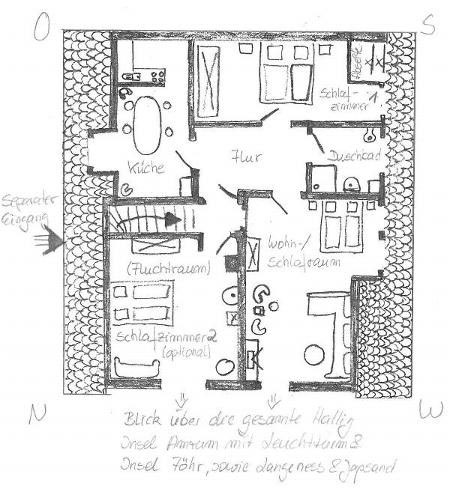 O
S
Schlaf-
zimmer 1
Küche
Flur
Duschbad
Separater
Eingang
(Fluchtraum)
Wohn-/
Schlafraum
Schlafzimmer 2
(optional)
N
W
Blick über die gesamte Hallig
Insel Amrum mit Leuchtturm &
Insel Föhr, sowie Langeness & Japsand